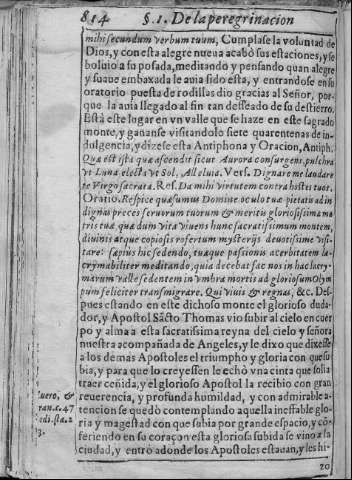 814 §. 1. De la peregrinacion
mihi secundum verbum tuum, Cumplase la voluntad de
Dios, y con esta alegre nueua acabò sus estaciones, y se
boluio a su posada, meditando y pensando quan alegre
y suaue embaxada le auia sido esta, y entrandose en su
oratorio puesta de rodillas dio gracias al Señor, por-
que la auia llegado al fin tan desseado de su destierro.
Està este lugar en vn valle que se haze en este sagrado
monte, y gananse visitandolo siete quarentenas de in-
dulgencia, y dizese esta Antiphona y Oracion, Antiph.
Quæ est ista quæ ascendit sicut Aurora consurgens, pulchra
vt Luna electa vt Sol, Alleluia. Vers. Dignare me laudare
te Virgo sacrata. Res. Da mihi virtutem contra hostes tuos.
Oratio. Respice quæsumus Domine oculo tuæ pietatis ad in
dignas preces seruorum tuorum & meritis gloriosissimæ ma
tris tuæ, quæ dum vita viuens hunc sacratissimum montem,
diuinis atque copiosis refertum mysterijs deuotissime visi-
tare: sæpius hic sedendo, tuæque passionis acerbitatem la-
crymabiliter meditando, quia decebat fac nos in hac lacry-
marum valle sedentem in vmbra mortis ad gloriosum Olym
pum feliciter transmigrare, Qui viuis & regnas, &c. Des-
pues estando en este dichoso monte el glorioso duda-
dor, y Apostol Sãcto Thomas vio subir al cielo en cuer
po y alma a esta sacratissima reyna del cielo y señora
nuestra acompañada de Angeles, y le dixo que dixesse
a los demas Apostoles el triumpho y gloria con que su
bia, y para que lo creyessen le echò vna cinta que solia
traer ceñida, y el glorioso Apostol la recibio con gran
reuerencia, y profunda humildad, y con admirable a-
tencion se quedò contemplando aquella ineffable glo-
ria y magestad con que subia por grande espacio, y cõ-
feriendo en su coraçon esta gloriosa subida se vino a la
ciudad, y entrò adonde los Apostoles estauan, y les hi-
zo
uero, &
ran. c. 47
edi. sta. 2
3.